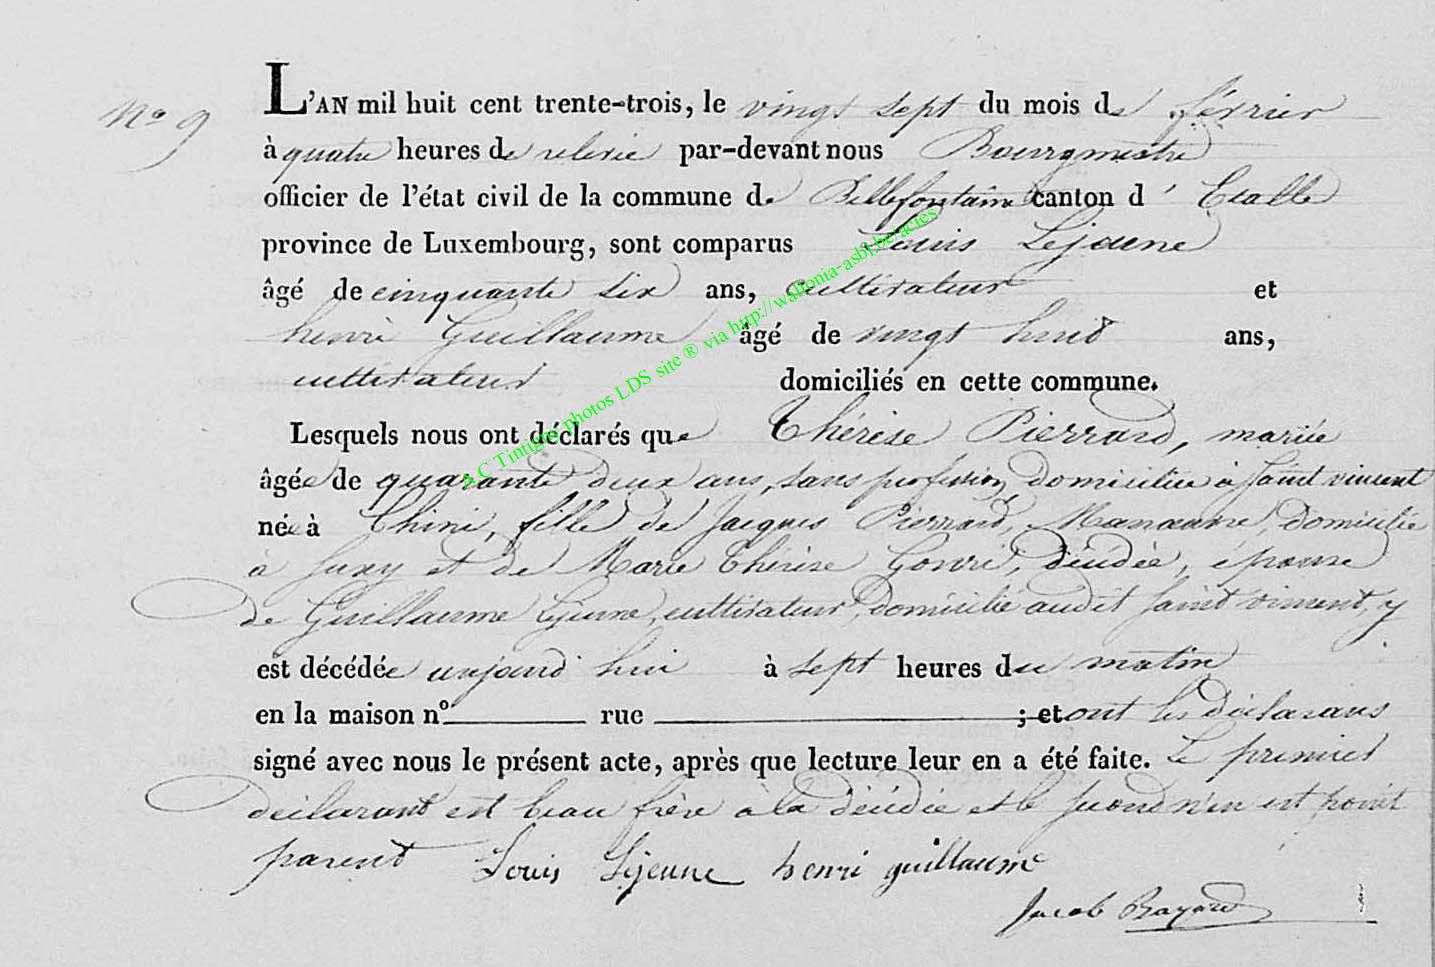 No 9
L'AN mil huit cent trente-trois, le vingt sept du mois de février
à quatre heures de relevée par-devant nous Bourgmestre
officier de l'état civil de la commune de Bellefontaine canton d' Etalle
province de Luxembourg, sont comparus Louis Lejeune
âgé de cinquante six ans, cultivateur et
henri Guillaume âgé de vingt huit ans,
cultivateur domiciliés en cette commune.
Lesquels nous ont déclarés que Thérèse Pierrard, mariée
âgée de quarante deux ans, sans profession, domiciliée à Saint vincent
née à Chini, fille de Jacques Pierrard, Manœuvre, domicilié
à Suxy et de Marie Thérèse Gonri, décédée, épouse
de Guillaume Lejeune, cultivateur, domicilié audit Saint vincent, y
est décédée aujourd'hui à sept heures du matin
en la maison no rue ; et ont les déclarans
signé avec nous le présent acte, après que lecture leur en a été faite. Le premier
déclarant est beau frère à la décédée et le second n'en est point
parent Louis Lejeune henri guillaume
Jacob Bayard
A.C Tintigny photos LDS site ® via http://wallonia-asbl.be/actes